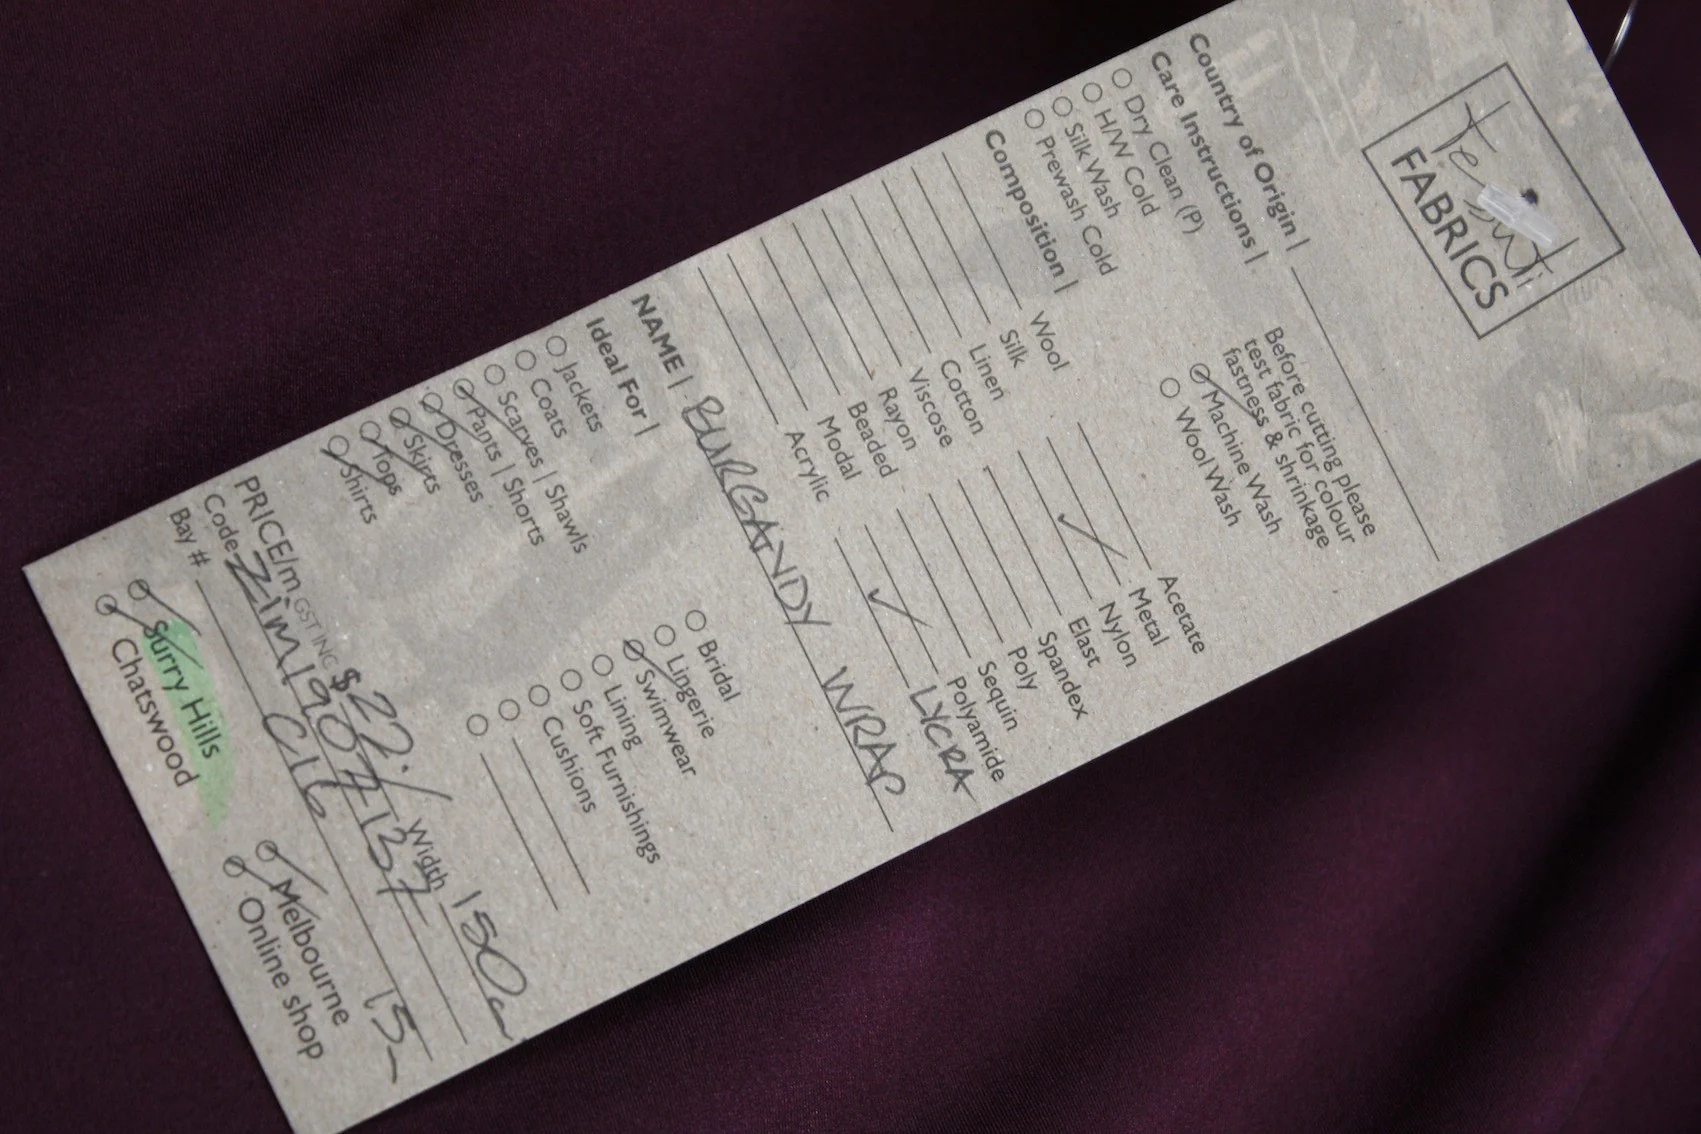 Tessuti
FABRICS
Country of Origin |
Care Instructions |
Dry Clean (P)
H/W Cold
Silk Wash
Prewash Cold
Before cutting please
test fabric for colour
fastness & shrinkage
Machine Wash
Wool Wash
Composition |
Wool
Silk
Linen
Cotton
Viscose
Rayon
Beaded
Modal
Acrylic
Acetate
Metal
Nylon
Elast
Spandex
Poly
Sequin
Polyamide
LYCRA
NAME | BURGANDY WRAP
Ideal For |
Jackets
Coats
Scarves | Shawls
Pants | Shorts
Dresses
Skirts
Tops
Shirts
Bridal
Lingerie
Swimwear
Lining
Soft Furnishings
Cushions
PRICE/m GST INC $22./ Width 150cm
Code ZIM1907137
Bay # C16 15-
Surry Hills
Chatswood
Melbourne
Online shop